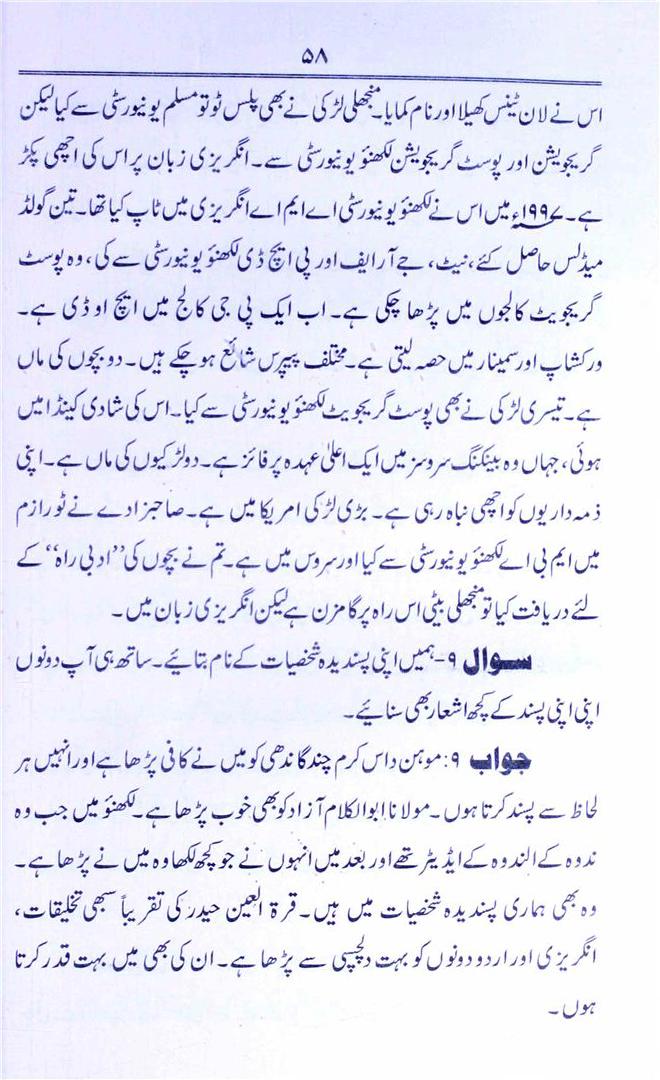 ۵۸
اس نے لان ٹینس کھیلا اور نام کمایا۔ منجھلی لڑکی نے بھی پلس ٹو تو مسلم یونیورسٹی سے کیا لیکن
گریجویشن اور پوسٹ گریجویشن لکھنؤ یونیورسٹی سے۔ انگریزی زبان پر اس کی اچھی پکڑ
ہے۔ ۱۹۹۷ء میں اس نے لکھنؤ یونیورسٹی اے ایم اے انگریزی میں ٹاپ کیا تھا۔ تین گولڈ
میڈلس حاصل کئے، نیٹ، جے آر ایف اور پی ایچ ڈی لکھنؤ یونیورسٹی سے کی، وہ پوسٹ
گریجویٹ کالجوں میں پڑھا چکی ہے۔ اب ایک پی جی کالج میں ایچ او ڈی ہے۔
ورکشاپ اور سمینار میں حصہ لیتی ہے۔ مختلف پیپرس شائع ہو چکے ہیں۔ دو بچوں کی ماں
ہے۔ تیسری لڑکی نے بھی پوسٹ گریجویٹ لکھنؤ یونیورسٹی سے کیا۔ اس کی شادی کینڈا میں
ہوئی، جہاں وہ بینکنگ سروسز میں ایک اعلیٰ عہدہ پر فائز ہے۔ دو لڑکیوں کی ماں ہے۔ اپنی
ذمہ داریوں کو اچھی نباہ رہی ہے۔ بڑی لڑکی امریکا میں ہے۔ صاحبزادے نے ٹورازم
میں ایم بی اے لکھنؤ یونیورسٹی سے کیا اور سروس میں ہے۔ تم نے بچوں کی ’’ادبی راہ‘‘ کے
لئے دریافت کیا تو منجھلی بیٹی اس راہ پر گامزن ہے لیکن انگریزی زبان میں۔
سوال ۹- ہمیں اپنی پسندیدہ شخصیات کے نام بتائیے۔ ساتھ ہی آپ دونوں
اپنی اپنی پسند کے کچھ اشعار بھی سنائیے۔
جواب ۹: موہن داس کرم چند گاندھی کو میں نے کافی پڑھا ہے اور انہیں ہر
لحاظ سے پسند کرتا ہوں۔ مولانا ابوالکلام آزاد کو بھی خوب پڑھا ہے۔ لکھنؤ میں جب وہ
ندوہ کے الندوہ کے ایڈیٹر تھے اور بعد میں انہوں نے جو کچھ لکھا وہ میں نے پڑھا ہے۔
وہ بھی ہماری پسندیدہ شخصیات میں ہیں۔ قرۃ العین حیدر کی تقریباً سبھی تخلیقات،
انگریزی اور اردو دونوں کو بہت دلچسپی سے پڑھا ہے۔ ان کی بھی میں بہت قدر کرتا
ہوں۔